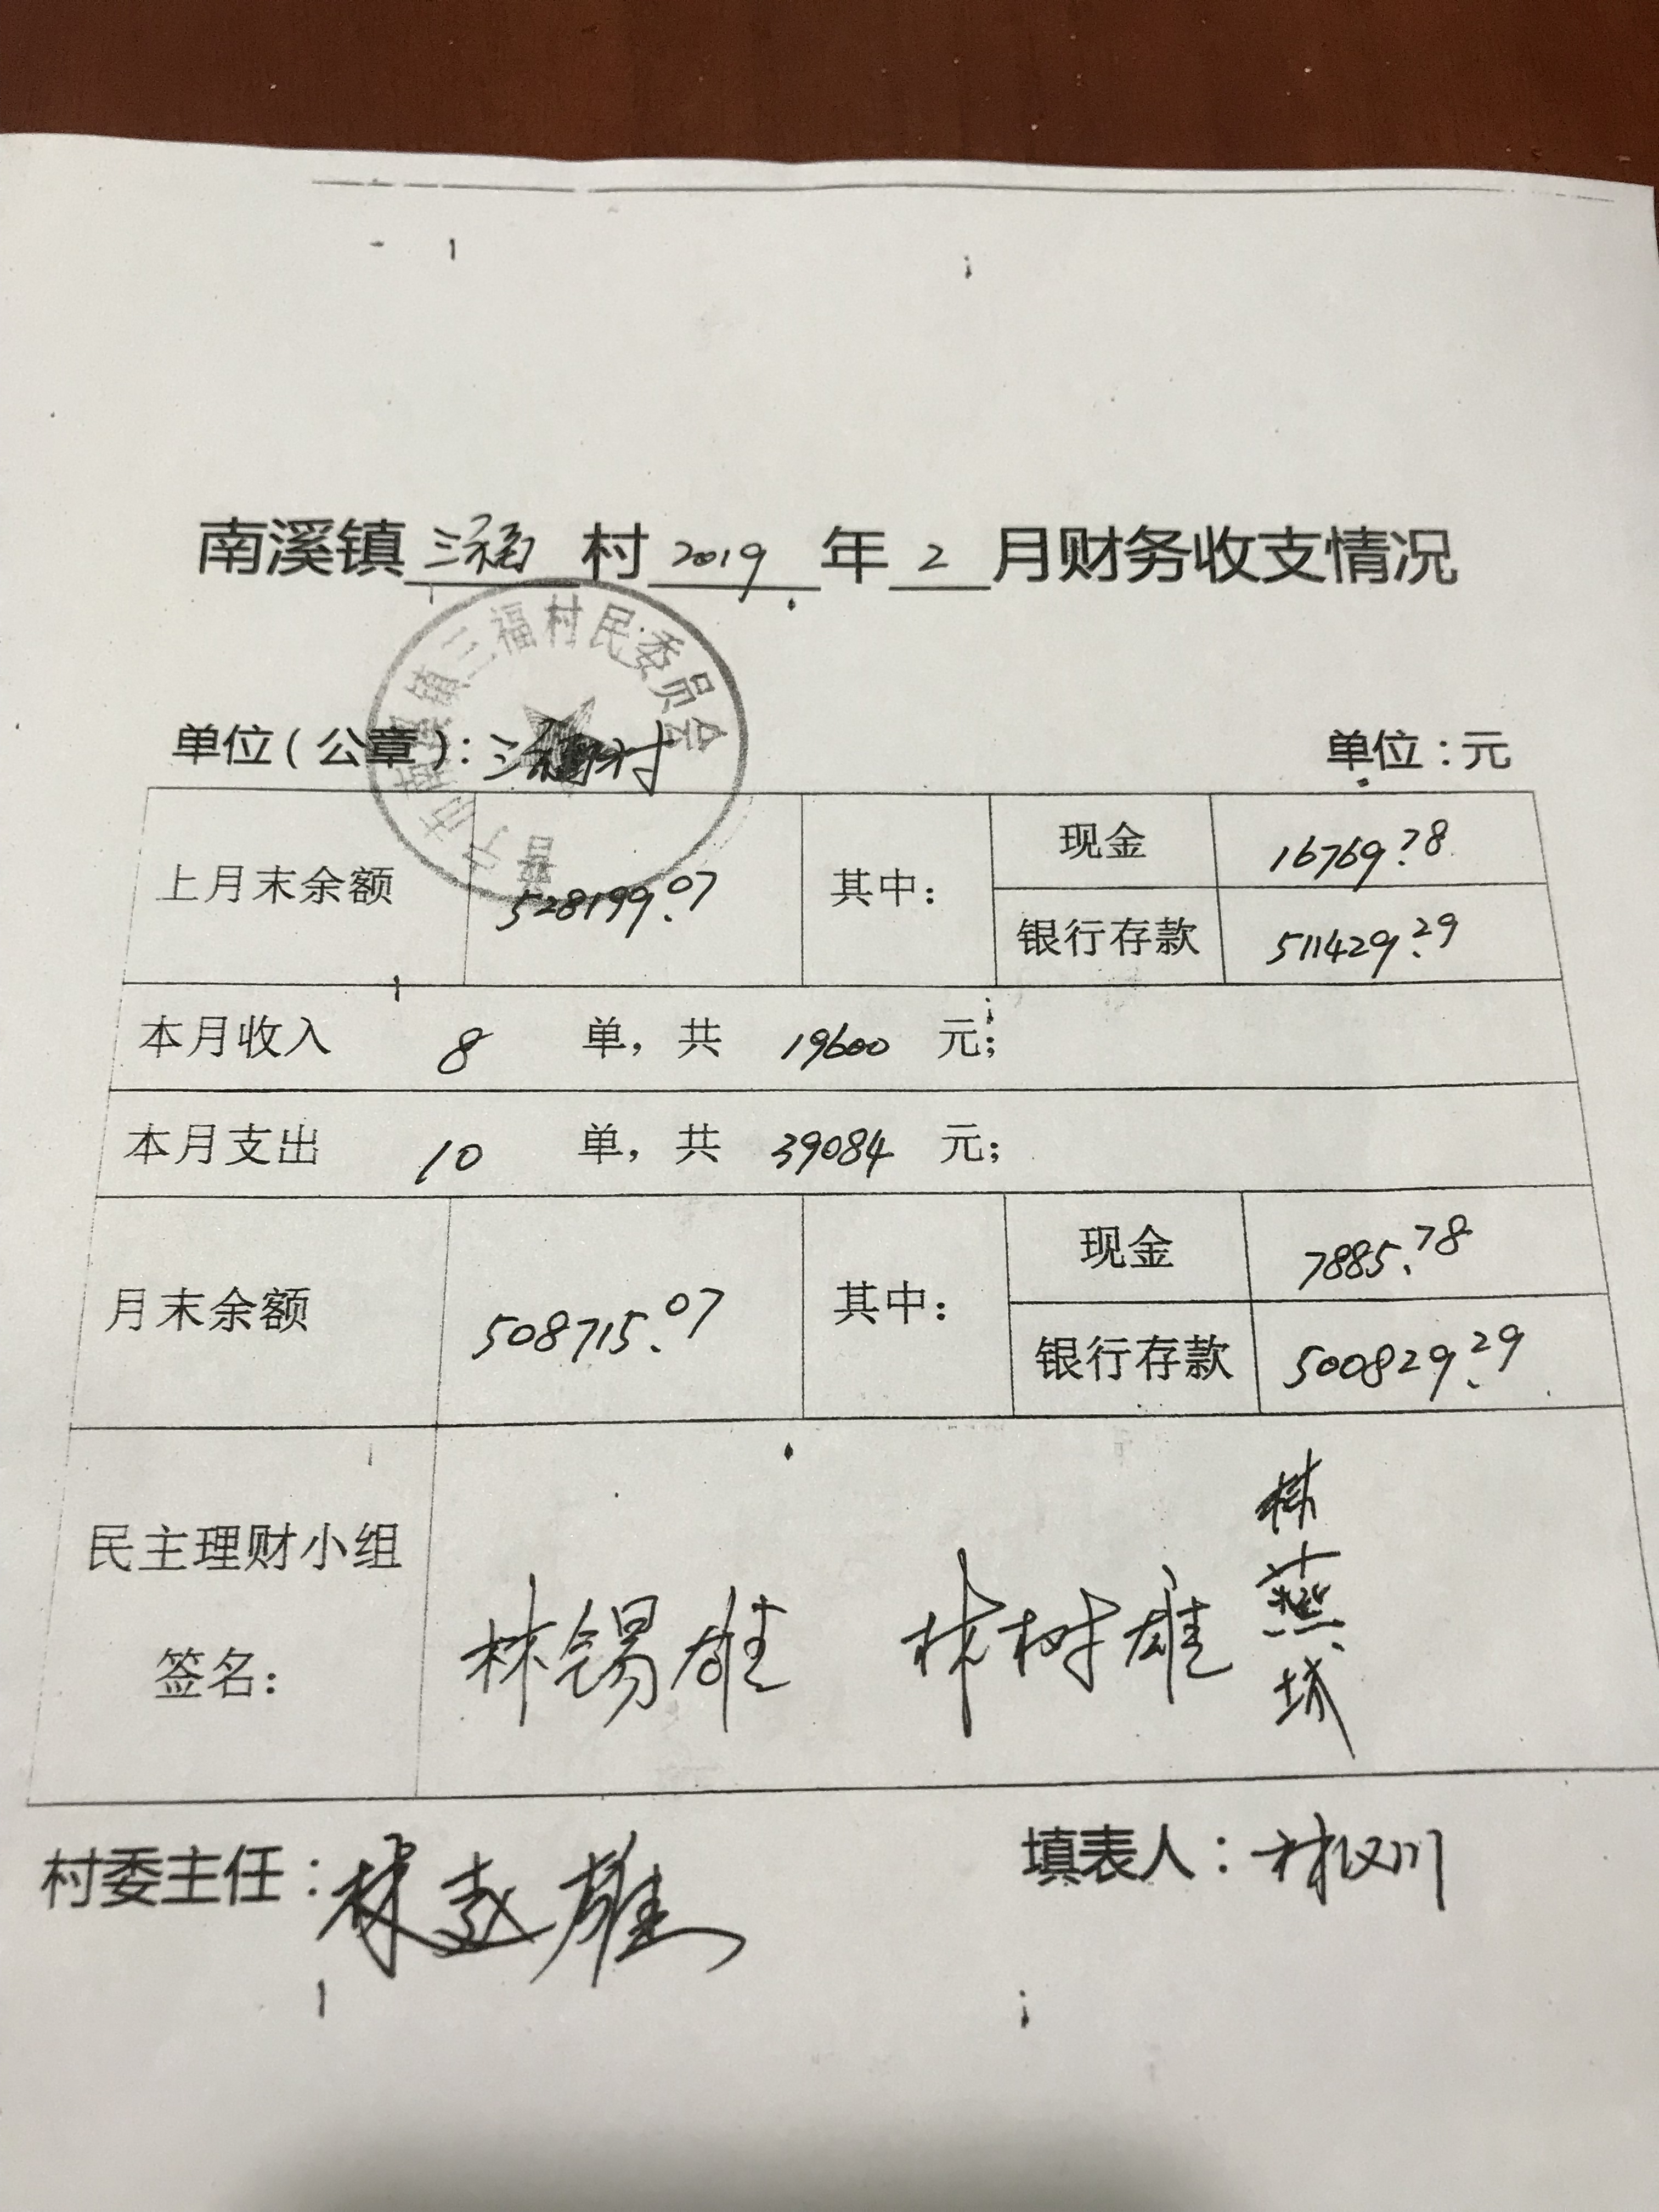 南溪镇三福村2019年2月财务收支情况
普宁市南溪镇三福村民委员会
单位(公章):三福村 单位:元
上月末余额 528199.07 其中: 现金 16769.78
银行存款 511429.29
本月收入 8 单,共 19600 元;
本月支出 10 单,共 39084 元;
月末余额 508715.07 其中: 现金 7885.78
银行存款 500829.29
民主理财小组
签名: 林锡雄 林树雄 林燕城
村委主任: 林 雄 填表人: 林汉川